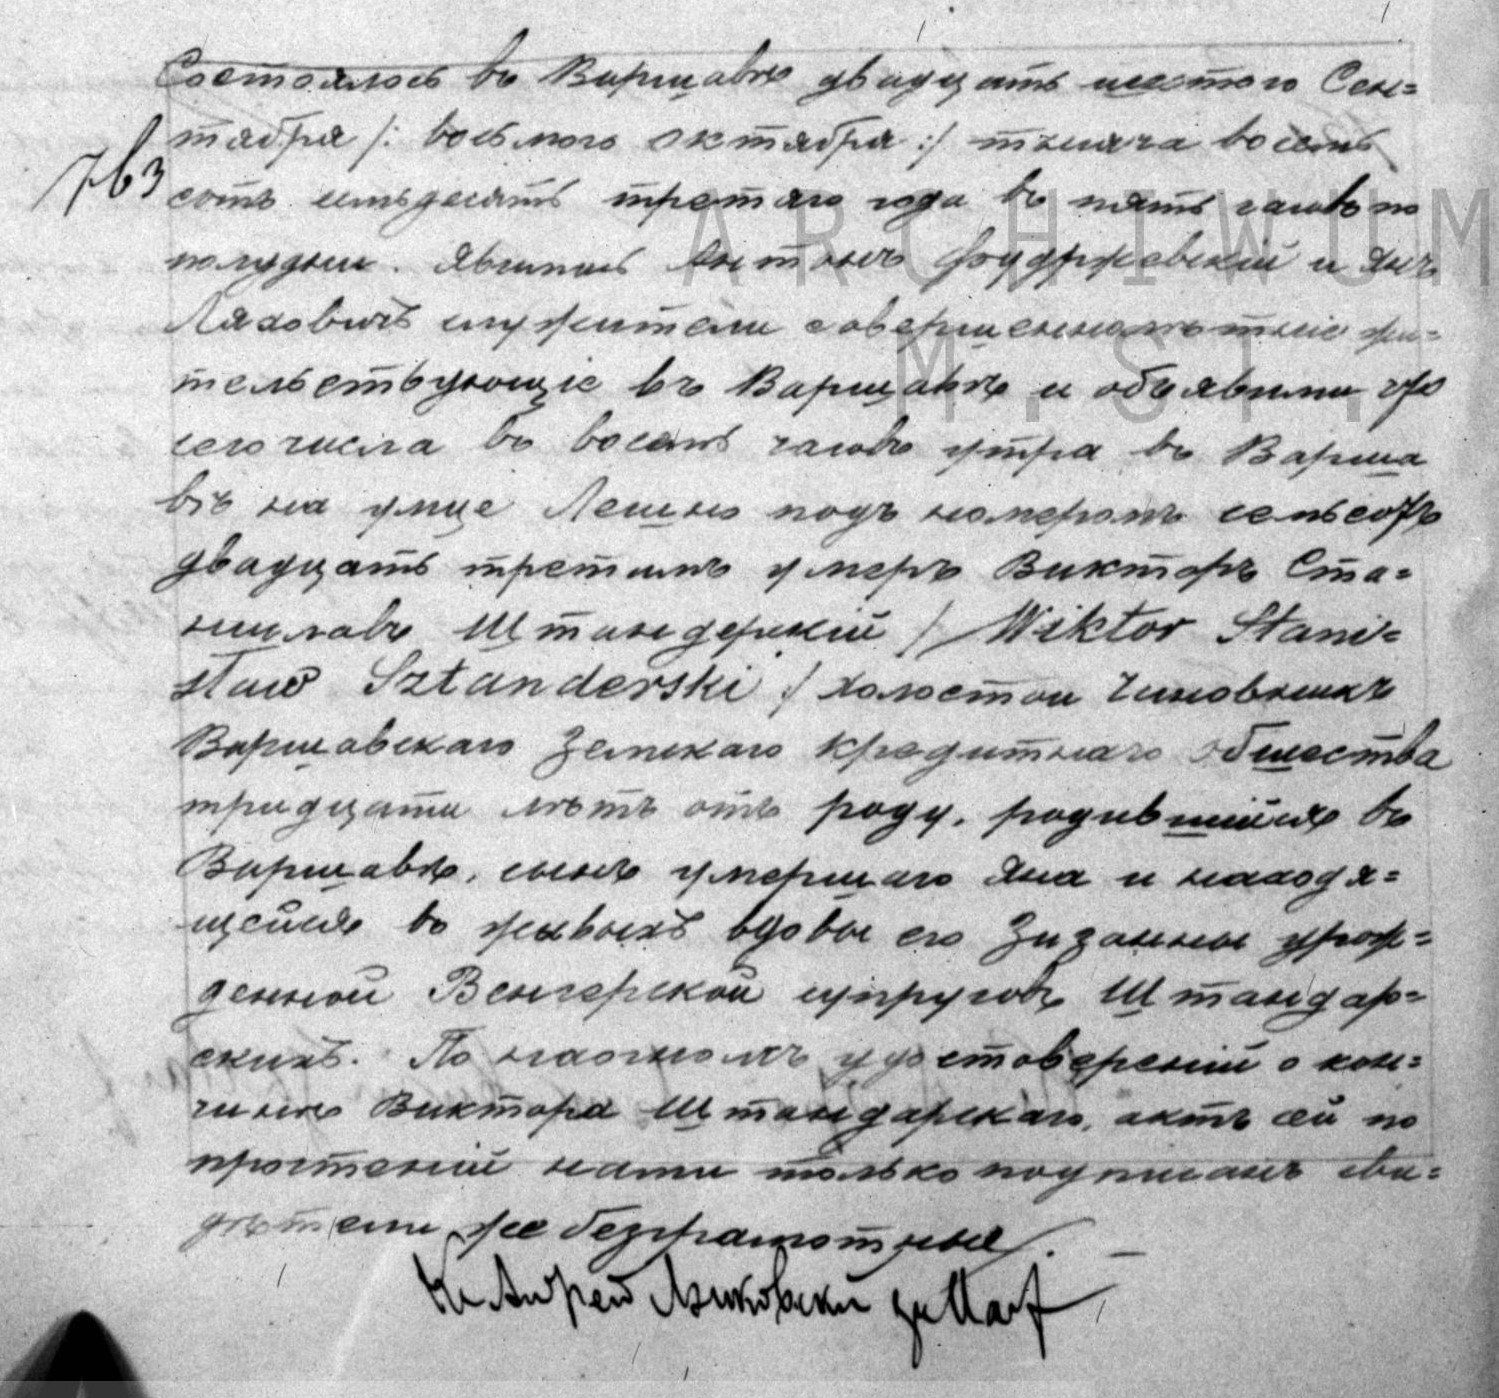 Состоялось въ Варшавѣ двадцать шестого Сен=
тября /: восьмого Октября :/ тысяча восемь
763
сотъ семьдесятъ третьяго года въ пять часовъ по
полудни. Явились Антонъ и Янъ
Ляховичъ служители совершеннолѣтніе жи=
тельствующіе въ Варшавѣ и объявили что
сего числа въ восемь часовъ утра въ Варша
вѣ на улице Лешно подъ номеромъ семьсотъ
двадцать третьимъ умеръ Викторъ Ста=
ниславъ Штандерскій / Wiktor Stani=
sław Sztanderski / холостой чиновникъ
Варшавскаго Земскаго Кредитнаго общества
тридцати лѣтъ отъ роду, родившійся въ
Варшавѣ, сынъ умершаго Яна и находя=
щейся въ живыхъ вдовы его Зузанны урож=
денной Венгерской супруговъ Штандар=
скихъ. По наочномъ удостовереніи о кон=
чинѣ Виктора Штандарскаго, актъ сей по
прочтеніи нами только подписанъ сви=
дѣтели же безграмотные. —
Кс Андрей
ARCHIWUM
M. ST.